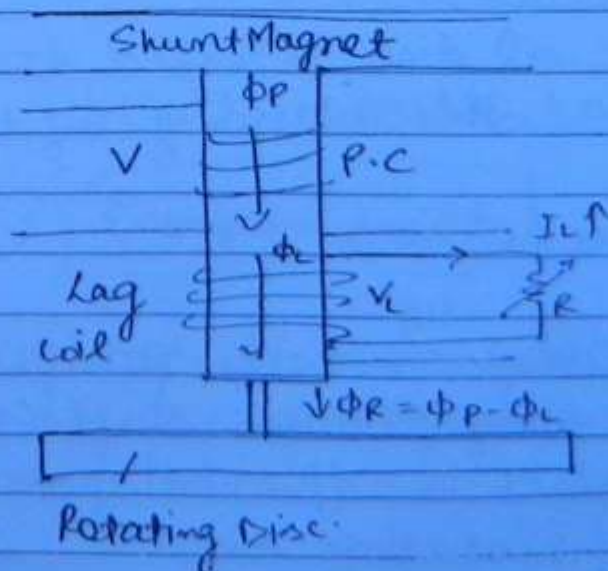 Shunt Magnet
ϕP
V
P.C
ϕL
IL ↑
Lag
coil
VL
R
↓ ϕR = ϕP - ϕL
Rotating Disc.